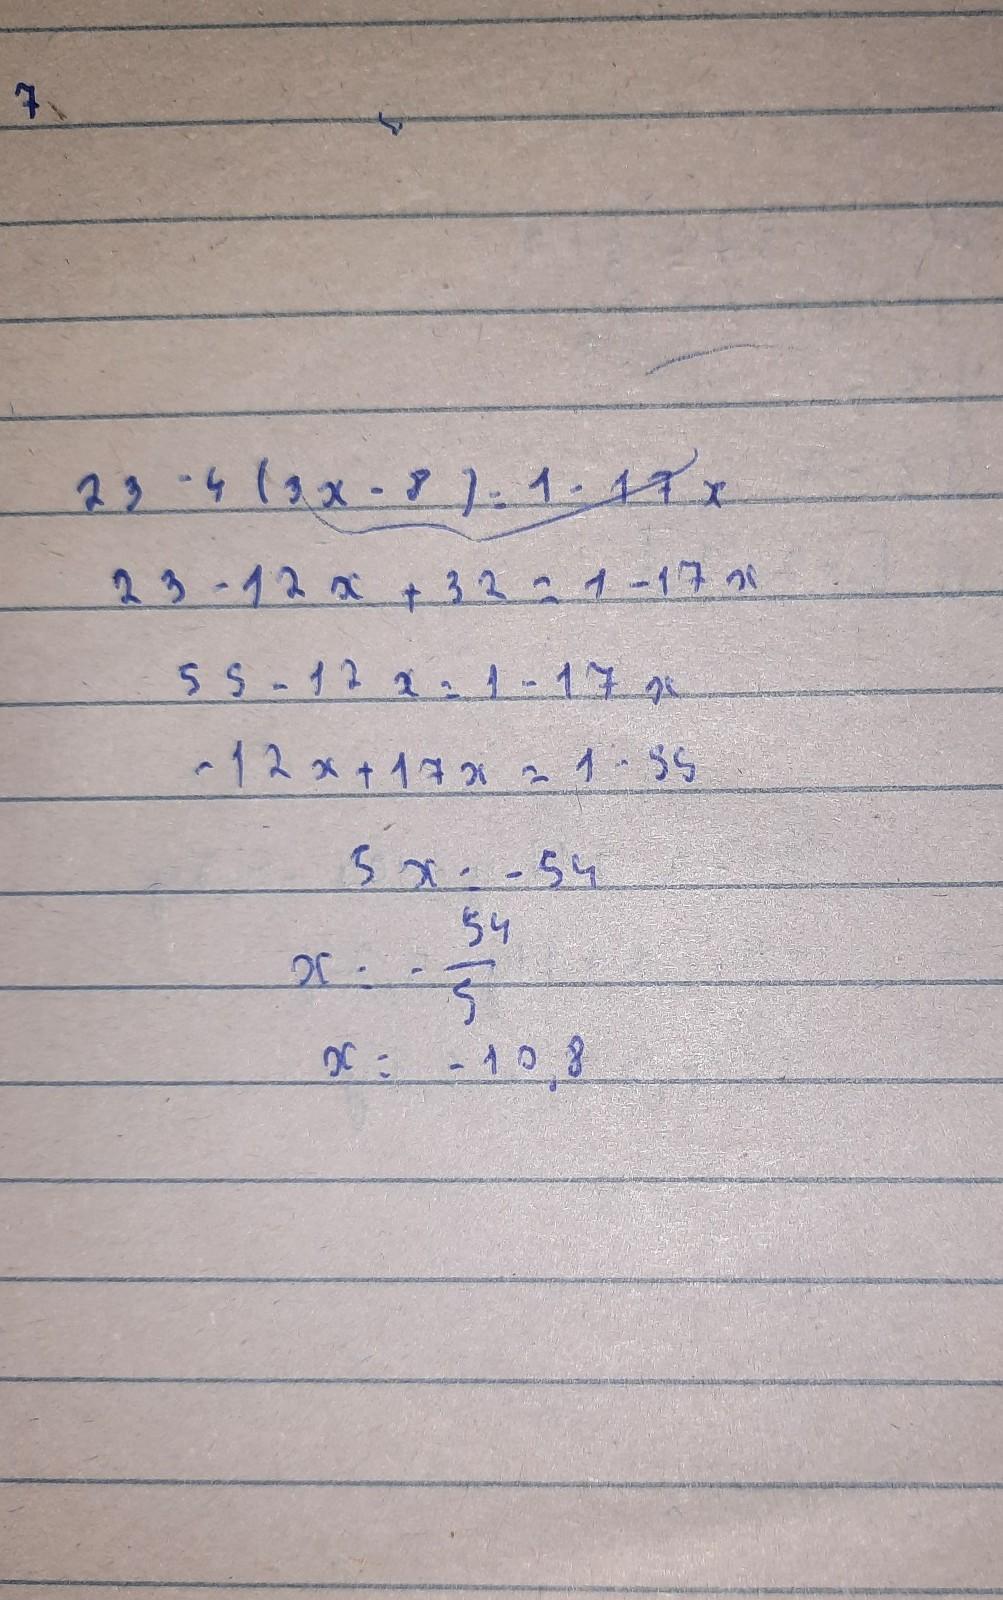 7
23 - 4 (3x - 8) = 1 - 17x
23 - 12x + 32 = 1 - 17x
55 - 12x = 1 - 17x
-12x + 17x = 1 - 55
5x = -54
x = - 54/5
x = -10,8